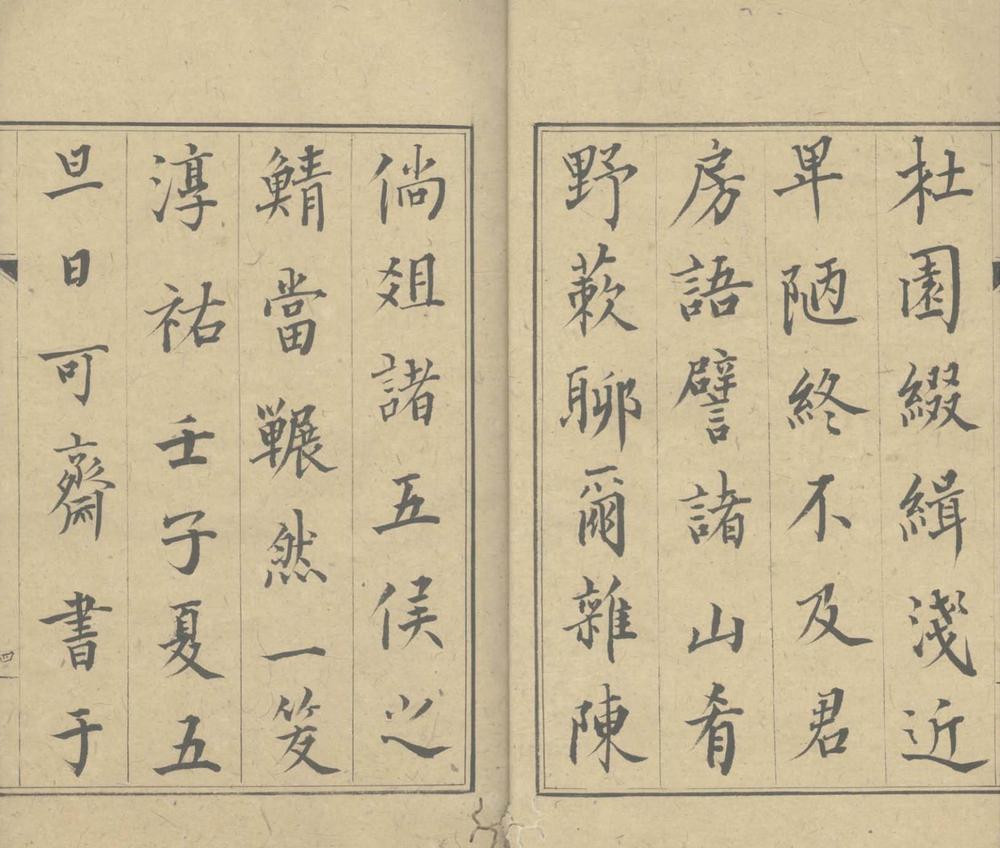 杜園綴緝淺近
卑陋終不及君
房語譬諸山肴
野蔌聊爾雜陳
倘俎諸五侯之
鯖當囅然一笑
淳祐壬子夏五
旦日可齋書于
四